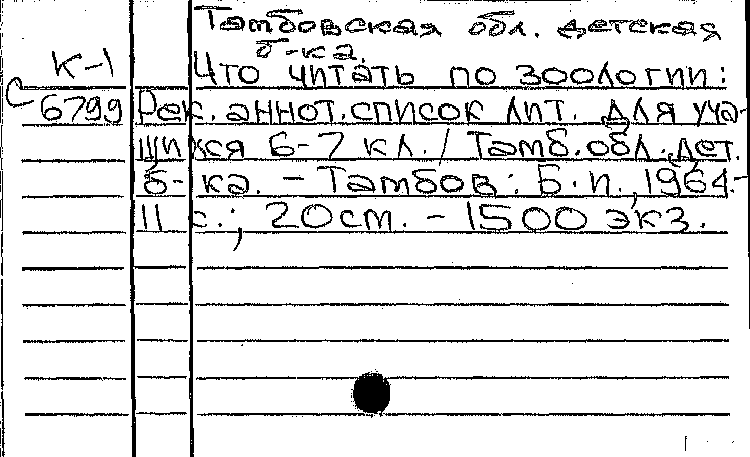 Тамбовская обл. детская
б-ка.
К-1 Что читать по зоологии:
С 6799 Рек. аннот. список лит. для уча-
щихся 6-7 кл. / Тамб. обл. дет.
б-ка. – Тамбов: Б.п., 1964.-
11 с.; 20 см. – 1500 экз.